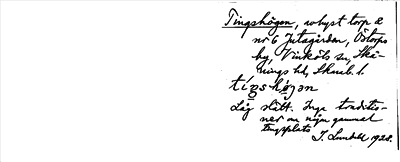 Tingshögen, obyst torp å
nr 6 Jutagården, Östorps
by, Vinköls sn, Skå-
nings hd, Skarab. l.
tiŋshøgan
Låg slätt. Inga traditio-
ner om någon gammal
tingsplats J. Lundahl 1928.